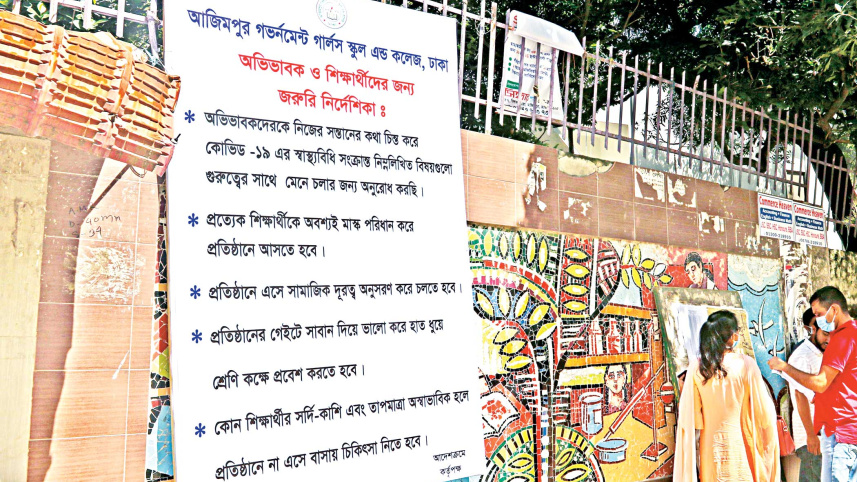 আজিমপুর গভর্নমেন্ট গার্লস স্কুল এন্ড কলেজ, ঢাকা
অভিভাবক ও শিক্ষার্থীদের জন্য
জরুরি নির্দেশিকা :
* অভিভাবকদেরকে নিজের সন্তানের কথা চিন্ত করে
কোভিড -১৯ এর স্বাস্থ্যবিধি সংক্রান্ত নিম্নলিখিত বিষয়গুলো
গুরুত্বের সাথে মেনে চলার জন্য অনুরোধ করছি।
* প্রত্যেক শিক্ষার্থীকে অবশ্যই মাস্ক পরিধান করে
প্রতিষ্ঠানে আসতে হবে।
* প্রতিষ্ঠানে এসে সামাজিক দূরত্ব অনুসরণ করে চলতে হবে।
* প্রতিষ্ঠানের গেইটে সাবান দিয়ে ভালো করে হাত ধুয়ে
শ্রেণি কক্ষে প্রবেশ করতে হবে।
* কোন শিক্ষার্থীর সর্দি-কাশি এবং তাপমাত্রা অস্বাভাবিক হলে
প্রতিষ্ঠানে না এসে বাসায় চিকিৎসা নিতে হবে।
আদেশক্রমে
কর্তৃপক্ষ
Commerce Heaven
Commerce Heaven